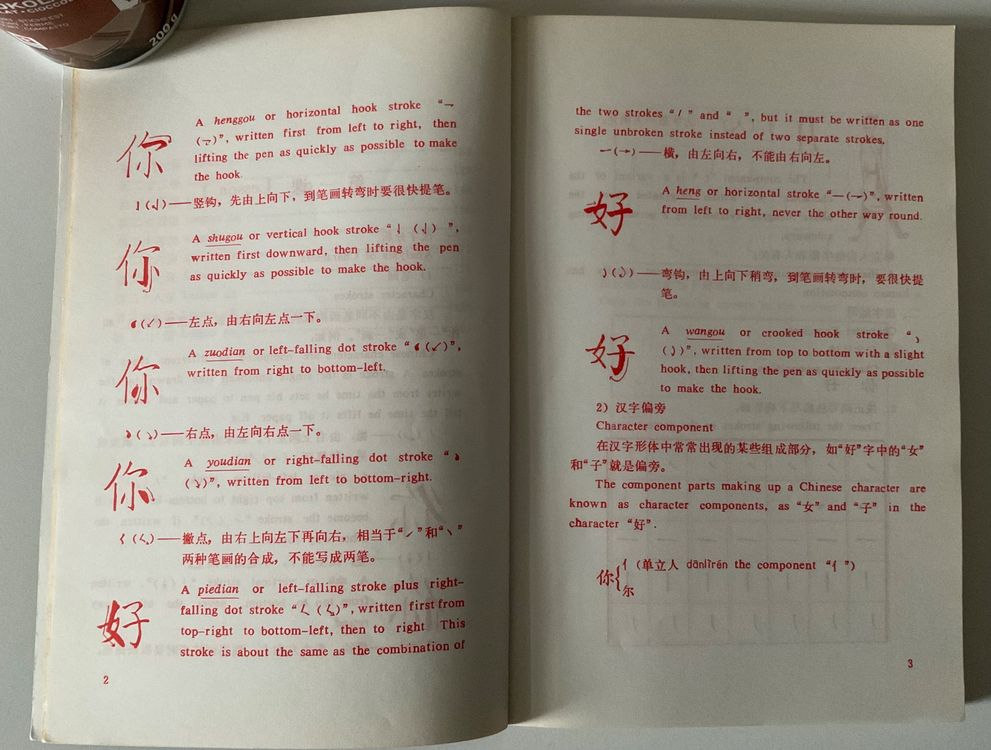 200 g
你
A henggou or horizontal hook stroke “㇖
(㇖)”, written first from left to right, then
lifting the pen as quickly as possible to make
the hook.
亅(亅)——竖钩，先由上向下，到笔画转弯时要很快提笔。
你
A shugou or vertical hook stroke “亅 (亅) ”,
written first downward, then lifting the pen
as quickly as possible to make the hook.
(↙)——左点，由右向左点一下。
你
A zuodian or left-falling dot stroke “ (↙)”,
written from right to bottom-left.
丶(丶)——右点，由左向右点一下。
你
A youdian or right-falling dot stroke “丶
(丶)”, written from left to bottom-right.
𡿨(𡿨)——撇点，由右上向左下再向右，相当于“㇒”和“丶”
两种笔画的合成，不能写成两笔。
好
A piedian or left-falling stroke plus right-
falling dot stroke “𡿨 (𡿨)”, written first from
top-right to bottom-left, then to right This
stroke is about the same as the combination of
2
the two strokes “㇒” and “ ”, but it must be written as one
single unbroken stroke instead of two separate strokes.
一(→)——横，由左向右，不能由右向左。
好
A heng or horizontal stroke “一(→)”, written
from left to right, never the other way round.
㇁(㇁)——弯钩，由上向下稍弯，到笔画转弯时，要很快提
笔。
好
A wangou or crooked hook stroke “㇁
(㇁)”, written from top to bottom with a slight
hook, then lifting the pen as quickly as possible
to make the hook.
2) 汉字偏旁
Character component
在汉字形体中常常出现的某些组成部分，如“好”字中的“女”
和“子”就是偏旁。
The component parts making up a Chinese character are
known as character components, as “女” and “子” in the
character “好”.
你{亻(单立人 dānlìrén the component “亻”)
尔
3